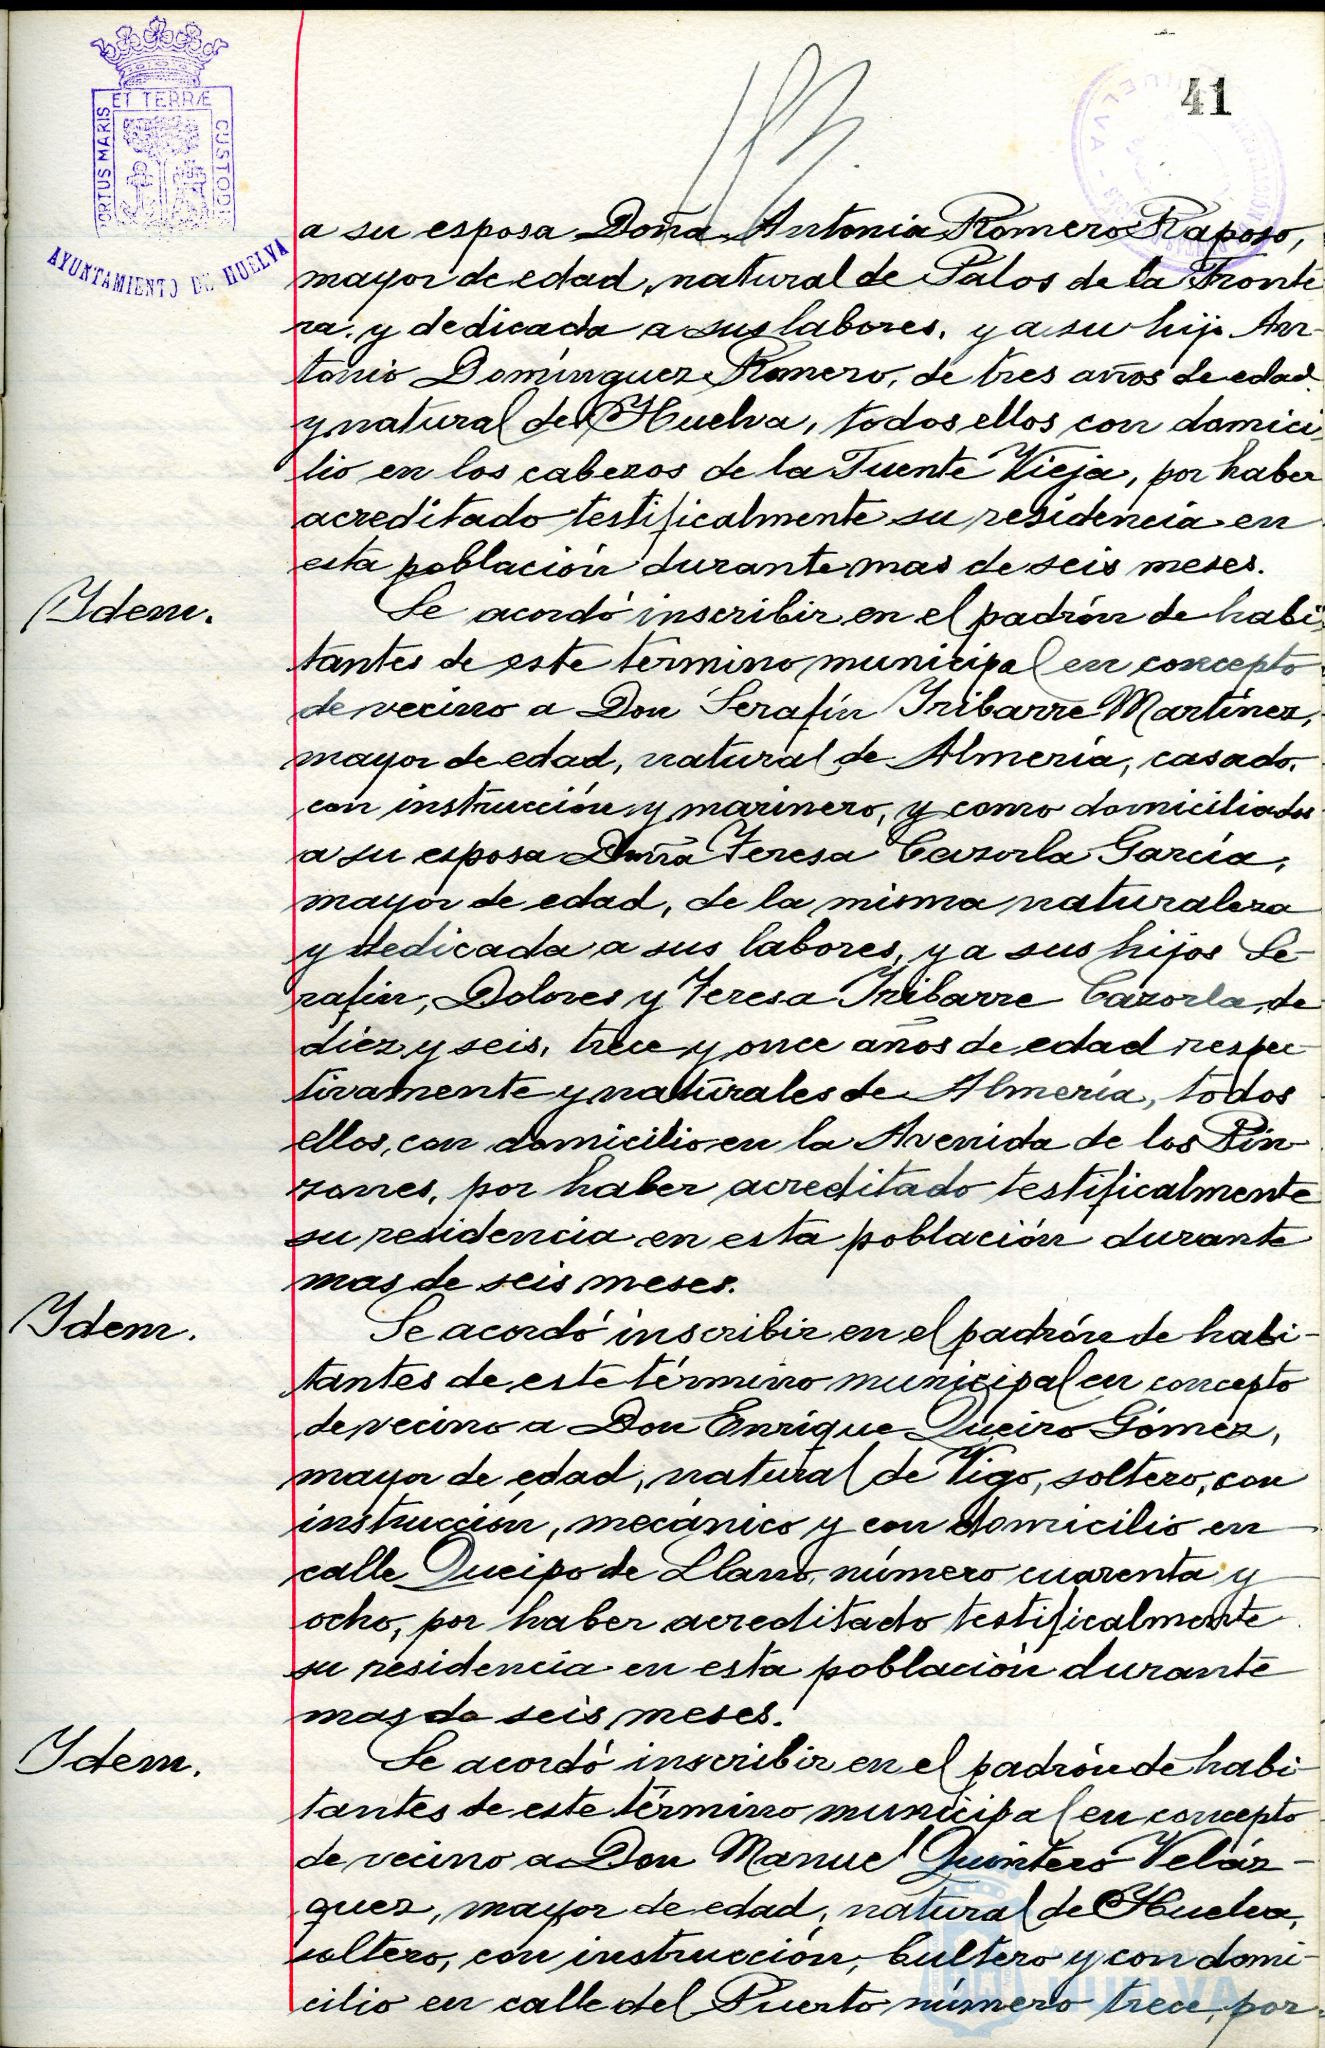 41
PORTUS MARIS ET TERRÆ CUSTODIA
AYUNTAMIENTO DE HUELVA
a su esposa Doña Antonia Romero Raposo,
mayor de edad, natural de Palos de la Fronte
ra, y dedicada a sus labores, y a su hijo An-
tonio Domínguez Romero, de tres años de edad
y natural de Huelva, todos ellos con domici
lio en los cabezos de la Fuente Vieja, por haber
acreditado testificalmente su residencia en
esta población durante mas de seis meses.
Ydem.
Se acordó inscribir en el padrón de habi-
tantes de este término municipal en concepto
de vecino a Don Serafín Yribarre Martínez,
mayor de edad, natural de Almería, casado,
con instrucción y marinero, y como domiciliados
a su esposa Doña Teresa Cazorla García,
mayor de edad, de la misma naturaleza
y dedicada a sus labores, y a sus hijos Se-
rafín, Dolores y Teresa Yribarre Cazorla, de
diez y seis, trece y once años de edad respec-
tivamente y naturales de Almería, todos
ellos, con domicilio en la Avenida de los Pin-
zones, por haber acreditado testificalmente
su residencia en esta población durante
mas de seis meses.
Ydem.
Se acordó inscribir en el padrón de habi-
tantes de este término municipal en concepto
de vecino a Don Enrique Queiro Gómez,
mayor de edad, natural de Vigo, soltero, con
instrucción, mecánico y con domicilio en
calle Queipo de Llano, número cuarenta y
ocho, por haber acreditado testificalmente
su residencia en esta población durante
mas de seis meses.
Ydem.
Se acordó inscribir en el padrón de habi-
tantes de este término municipal en concepto
de vecino a Don Manuel Quintero Veláz-
quez, mayor de edad, natural de Huelva,
soltero, con instrucción, bultero y con domi-
cilio en calle del Puerto número trece, por
HUELVA